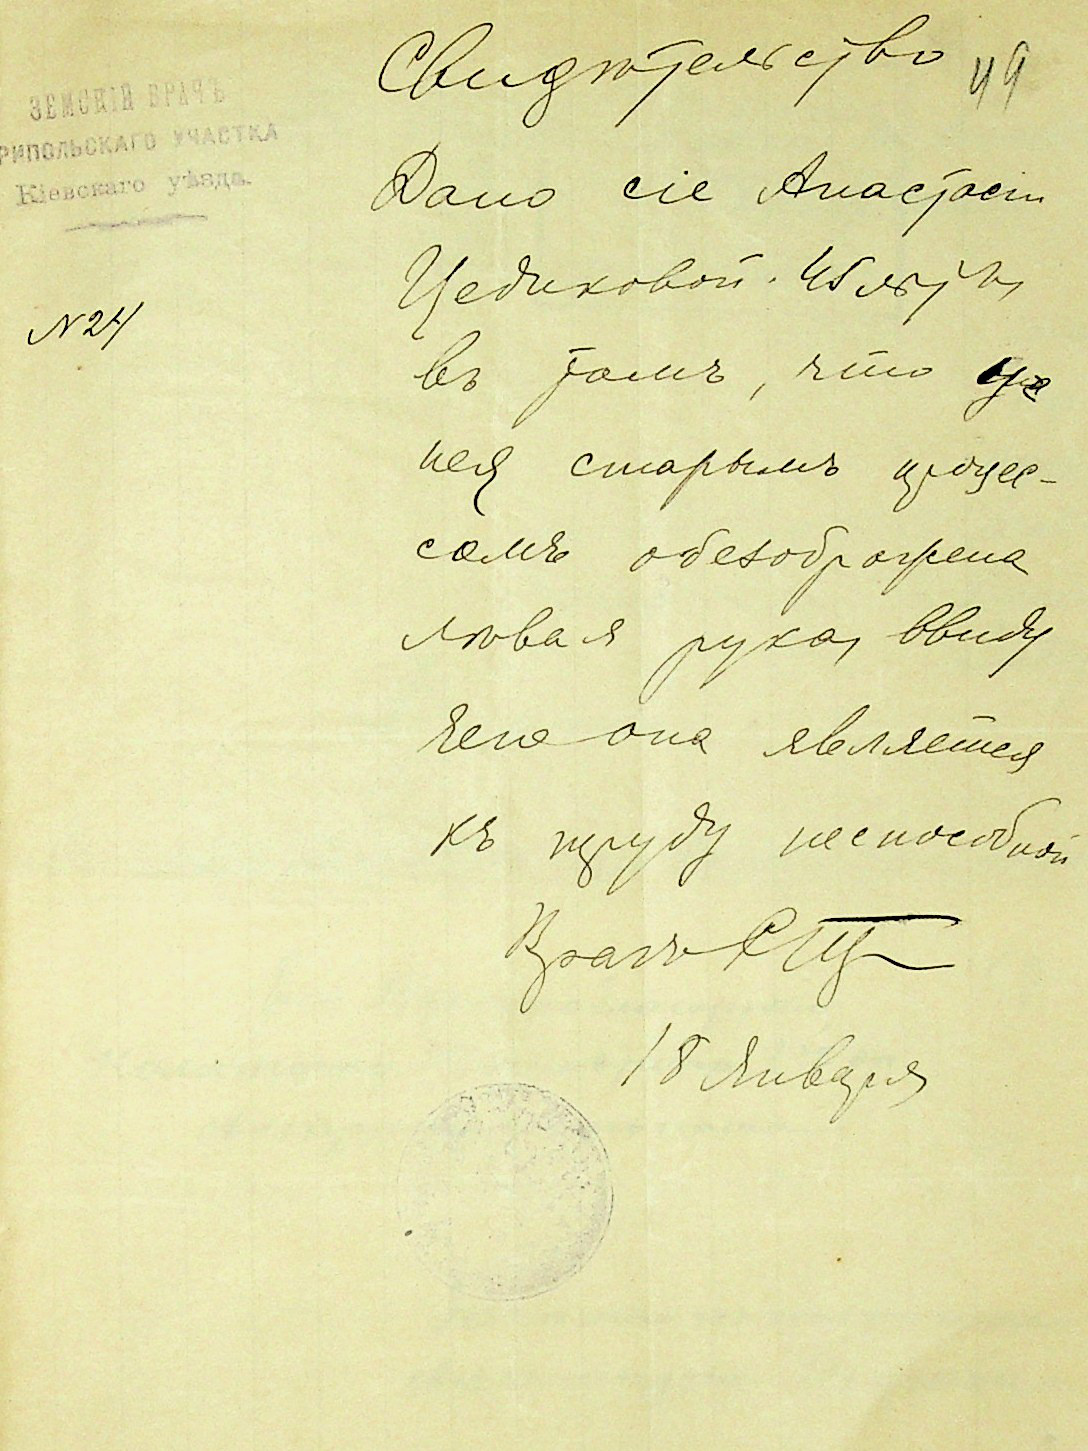 Свидѣтельство 49
ЗЕМСКІЙ ВРАЧЪ
РИПОЛЬСКАГО УЧАСТКА
Кіевскаго уѣзда.
N 24
Дано сіе Анастасіи
Цедиковой 45 лѣтъ,
въ томъ, что у
нея старымъ процес-
сомъ обезображена
лѣвая рука, ввиду
чего она является
къ труду неспособной
Врачъ
18 Января